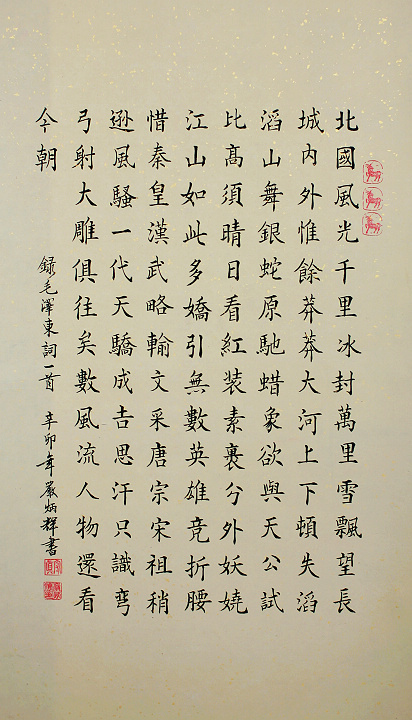 北國風光千里冰封萬里雪飄望長
城内外惟餘莽莽大河上下頓失滔
滔山舞銀蛇原馳蜡象欲與天公試
比髙須晴日看紅装素裹分外妖嬈
江山如此多嬌引無數英雄竞折腰
惜秦皇漢武略輸文采唐宗宋祖稍
逊風騷一代天驕成吉思汗只識彎
弓射大雕俱往矣數風流人物還看
今朝
録毛澤東詞一首 辛卯年嚴炳輝書